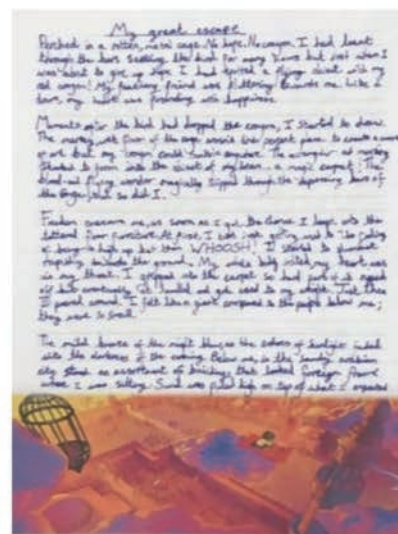 My great escape
Perched in a rotten, metal cage. No hope. No crayon. I had leant
through the bars seeking the bird for many hours but just when I
was about to give up hope I had spotted a flying object with my
red crayon! My feathery friend was fluttering towards me. Like a
my heart was pounding with happiness.
Moments after the bird had dropped the crayon, I started to draw.
The floor of the cage wasn't the perfect place to create a
of art but my crayon could outwit anywhere. The
started to form into the object of my a magic carpet! The
and flying wonder magically slipped through the bars of
the so did I.
Freedom overcame me, as soon as I got the chance I leapt onto the
At first, I was just getting used to the feeling
of being so high up but then WHOOSH! I started to plummet
rapidly towards the ground. My whole body my heart was
in my throat. I gripped onto the carpet so hard part of it ripped
off but eventually I and got used to my Just then
I peered around. I felt like a giant compared to the people below me;
they were so small.
The mild breeze of the night blew as the of faded
into the darkness of the evening. Below me, in the sandy
city stood an assortment of buildings that looked foreign from
where I was sitting. Sand was piled high on top of what I expected